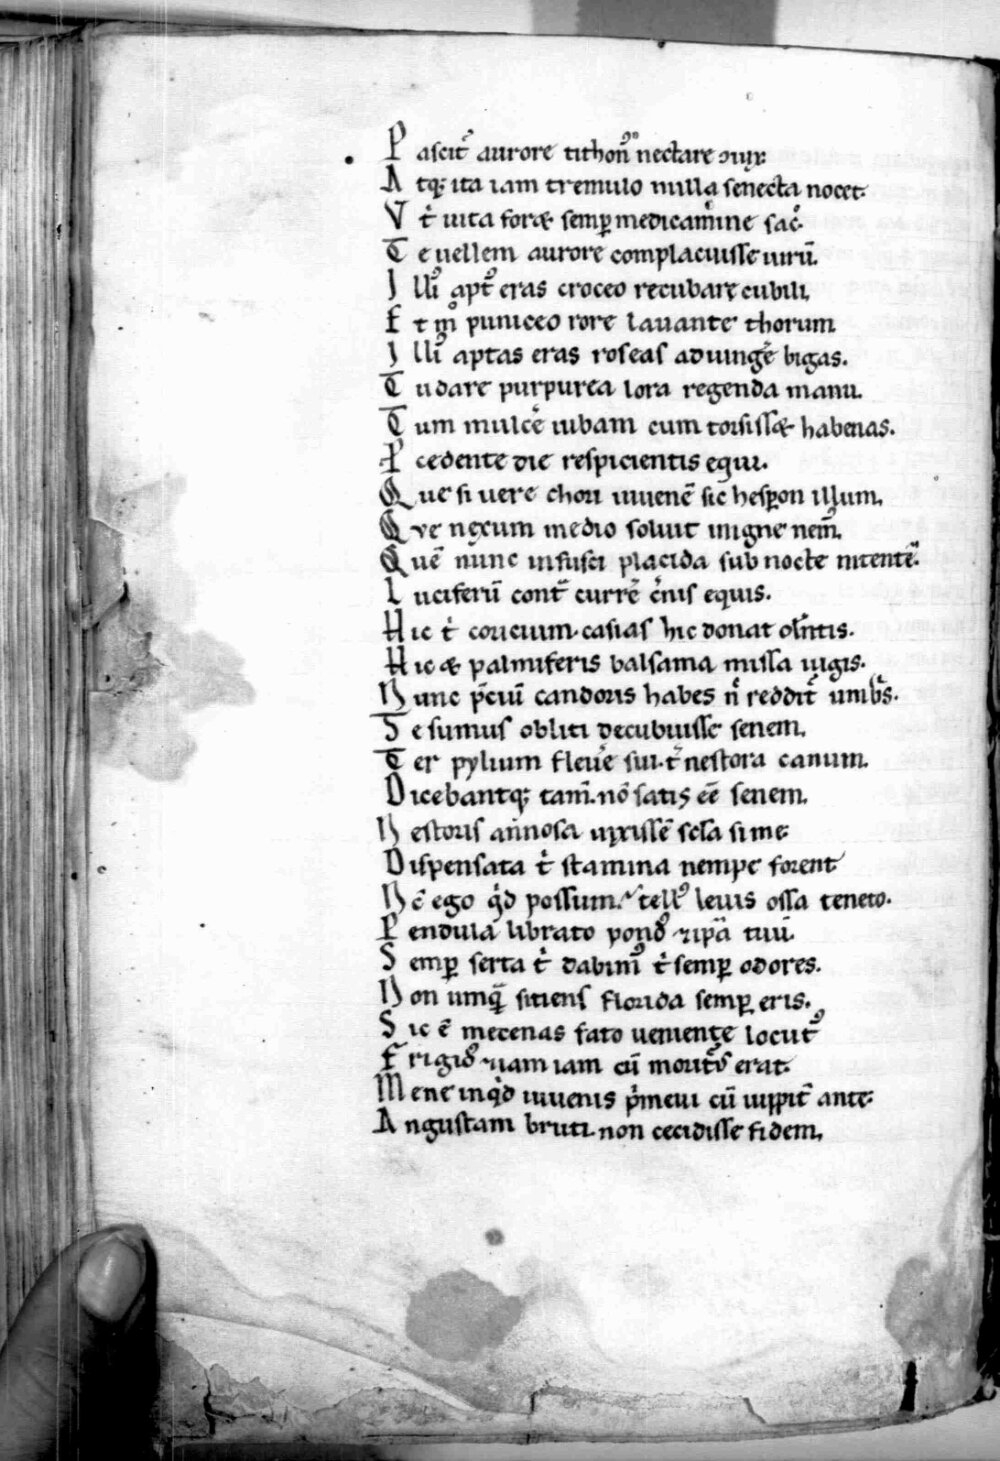 P ascit̄ aurore tithon᷒ nectare ↄiux:
A tq; ita iam tremulo nulla senecta nocet·
V t̓ uita foræ semp̱ medicam̄ine sac̓·
T e uellem aurore complacuisse uirū.
I lli᷒ apt᷒ eras croceo recubare cubili,
E t m̊ puniceo rore lauante thorum
I lli᷒ aptas eras roseas adiunge̓ bigas.
T u dare purpurea lora regenda manu.
T um mulce̓ iubam cum torsissæ habenas.
P cedente die respicientis equi.
Q ue si uere chori iuuenē sic hesp̱on illum,
Q ve nexum medio soluit inigne nem᷒.
Q uē nunc infusci placida sub nocte nitentē.
L uciferū cont̄ currē c̓nis equis.
H ic t̓ coricium· casias hic donat ol̓ntis.
H ic æ palmiferis balsama missa iugis.
N unc p̄ciū candoris habes n̊ reddit̄ umb̓s.
T e sumus obliti decubuisse senem.
T er pylium fleue̓ sui· t̓ nestora canum.
D icebantq; tam̄. nō satis eē senem.
N estoris annosa uixissē scl̄a si me
D ispensata t̓ stamina nempe forent
N c̄ ego q̊d possum· tell᷒ leuis ossa teneto.
P endula librato pond᷒ ⁊ ip̄a tuū.
S emp̱ serta t̓ dabim᷒ t̓ semp̱ odores.
N on umq̄ sitiens florida semp̱ eris.
S ic ē mecenas fato ueniente locut᷒
F rigid᷒ ⁊ iam iam cū morit᷒᷒ erat·
M ene inq̊d iuuenis p̓meui cū iuppit̄ ante·
A ngustam bruti· non cecidisse fidem,